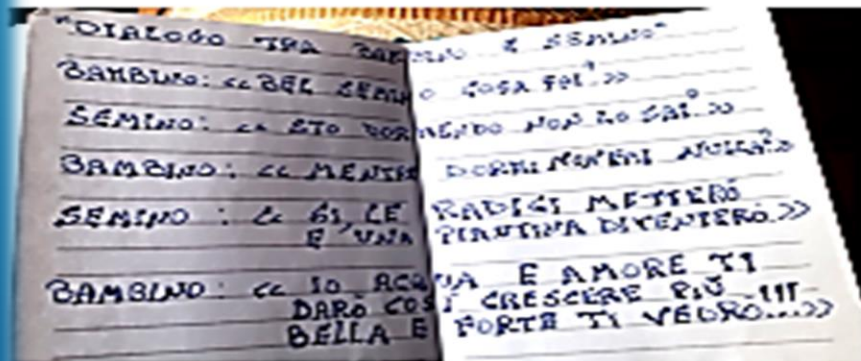 "DIALOGO TRA BAMBINO E SEMINO"
BAMBINO: << BEL SEMINO COSA FAI? >>
SEMINO: << STO DORMENDO NON LO SAI? >>
BAMBINO: << MENTRE DORMI NULLA? >>
SEMINO : << SI, LE RADICI METTERÒ
E UNA PIANTINA DIVENTERÒ. >>
BAMBINO: << IO ACQUA E AMORE TI
DARÒ COSÌ CRESCERE PIÙ
BELLA E FORTE TI VEDRÒ...>>